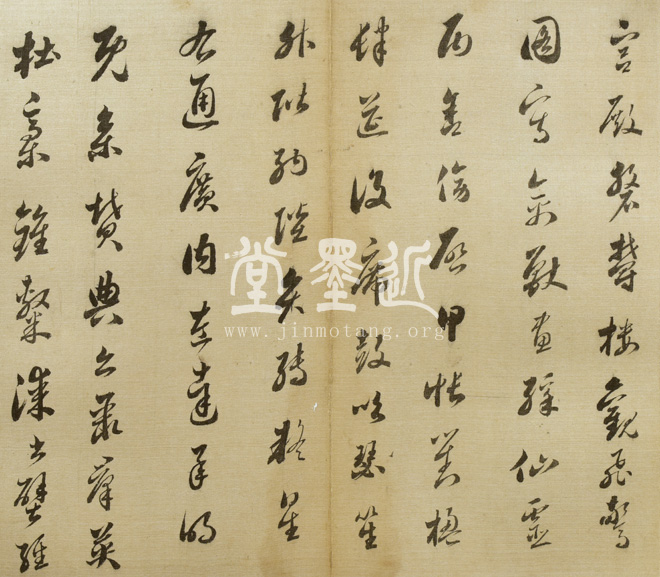 宮殿磐欝樓觀飛驚
圖寫禽獸畫綵仙靈
丙舍傍啓甲帳對楹
肆筵設席鼓吹瑟笙
升階納陛弁轉疑星
右通廣內左達承明
既集墳典亦聚群英
杜稾鍾隸漆書壁經
近墨堂
www.jinmotang.org